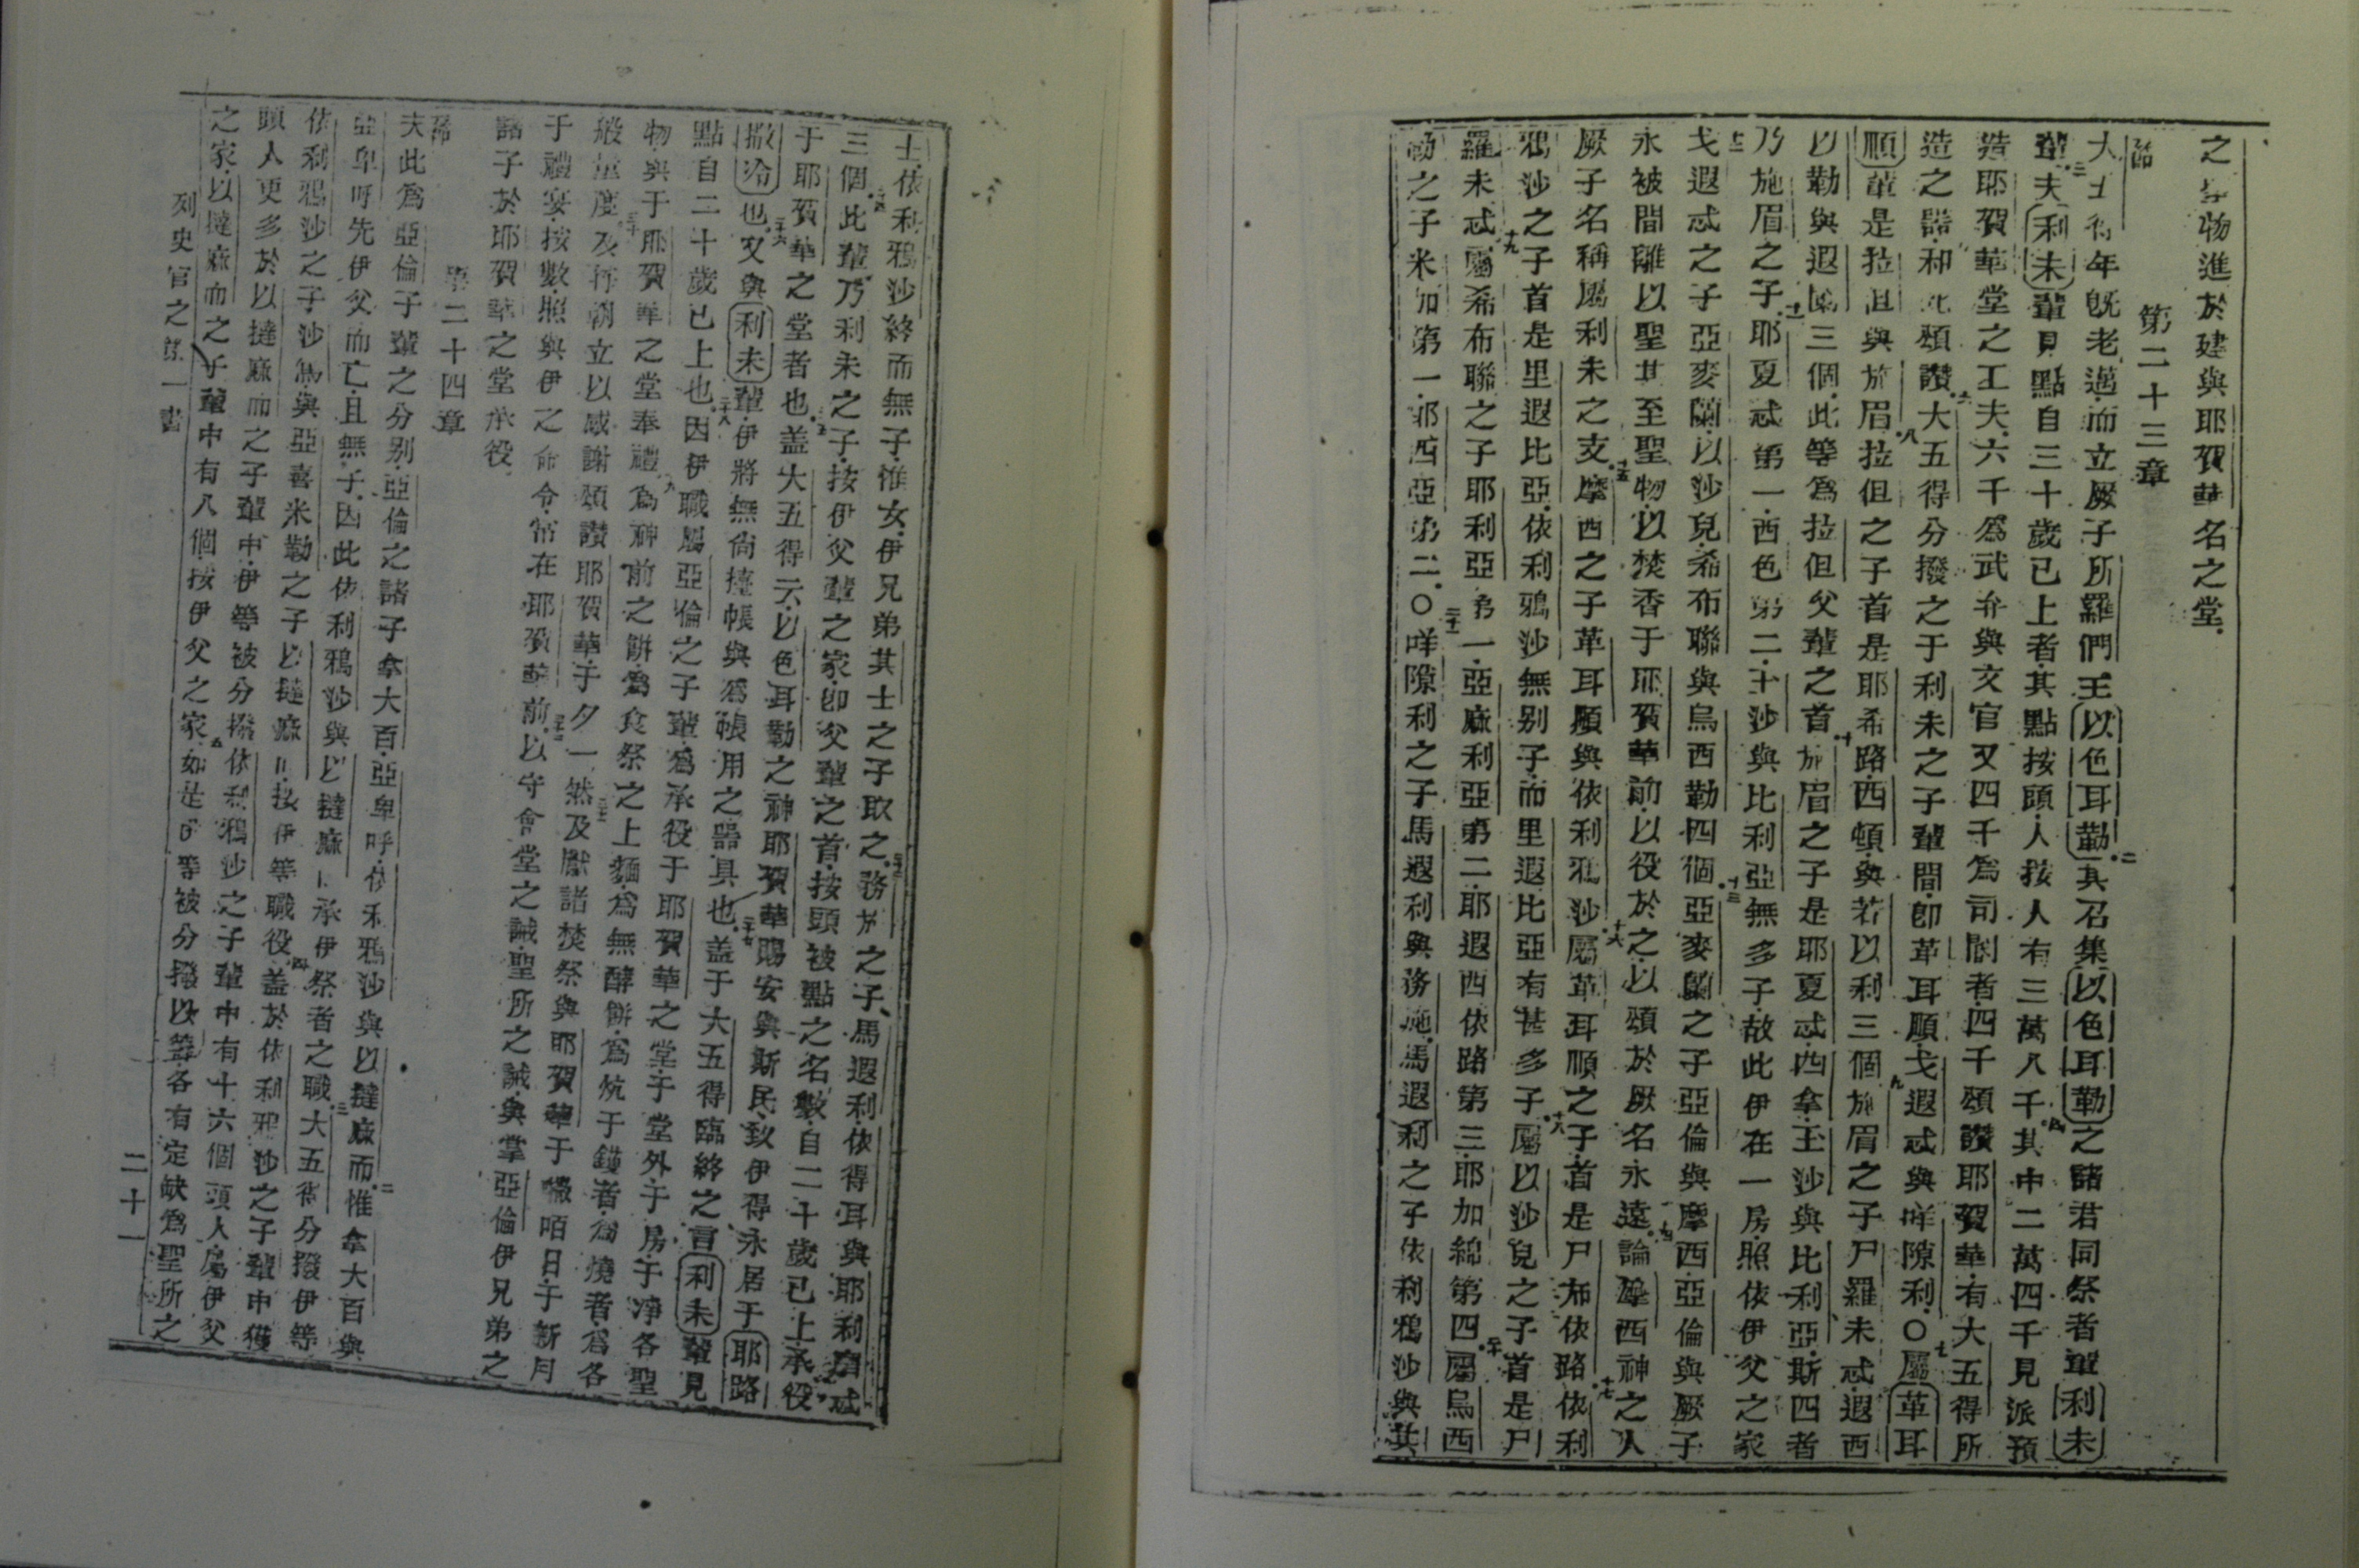 之 物進於建與耶賀華名之堂
第二十三章
大 年既老邁而立厥子所羅們王以色耳勒二其召集以色耳勒之諸君同祭者輩利未
輩三夫利未輩見點自三十歲已上者其點按頭人按人有三萬八千四其中二萬四千見派預
造耶賀華堂之工夫六千為武弁與文官五又四千為司閽者四千頌讚耶賀華有大五得所
造之器和 頌讚六大五得分撥之于利未之子輩間即革耳順戈遐忒與咩隙利〇七屬革耳
順輩是拉但與施眉八拉但之子首是耶希路西頓與若以利三個九施眉之子尸羅未忒遐西
以勒與遐 三個此等為拉但父輩之首十施眉之子是耶夏忒西拿 沙與比利亞斯四者
乃施眉之子十一耶夏忒第一西色第二 沙與比利亞無多子故此伊在一房照依伊父之家
十二戈遐忒之子亞麥蘭以沙兒希布聯與烏西勒四個十三亞麥蘭之子亞倫與摩西亞倫與厥子
永被間離以聖其至聖物以焚香于耶賀華前以役於之以頌於厥名永遠十四論摩西神之人
厥子名稱屬利未之支十五摩西之子革耳順與依利鴉沙十六屬革耳順之子首是尸布依路十七依利
鴉沙之子首是里遐比亞依利鴉沙無別子而里遐比亞有甚多子十八屬以沙兒之子首是尸
羅未忒十九屬希布聯之子耶利亞第一亞麻利亞第二耶遐西依路第三耶加綿第四二十屬烏西
勒之子米加第一耶西亞第二〇二十一咩隙利之子馬遐利與務施馬遐利之子依利鴉沙與其
士二十二依利鴉沙終而無子惟女伊兄弟其士之子取之二十三務施之子馬遐利依得耳與耶利磨忒
三個二十四此輩乃利未之子按伊父輩之家即父輩之首按頭被點之名數自二十歲已上承役
于耶賀華之堂者也二十五蓋大五得云以色耳勒之神耶賀華賜安與斯民致伊得永居于耶路
撒冷也二十六又與利未輩伊將無尚擡帳與為帳用之器具也二十七蓋于大五得臨終之言利未輩見
點自二十歲已上也二十八因伊職屬亞倫之子輩為承役于耶賀華之堂于堂外于房于凈各聖
物與于耶賀華之堂奉禮二十九為神前之餅為食祭之上麵為無酵餅為炕于鑊者為燒者為各
般量度三十及行朝立以感謝頌讚耶賀華于夕一然三十一及獻諸焚祭與耶賀華于 咟日于新月
于禮宴按數照與伊之命令常在耶賀華前三十二以守會堂之誡聖所之誡與掌亞倫伊兄弟之
諸子於耶賀華之堂承役
第二十四章
夫此為亞倫子輩之分別亞倫之諸子拿大百亞卑呼依利鴉沙與以撻麻而二惟拿大百與
亞卑呼先伊父而亡且無子因此依利鴉沙與以撻麻而承伊祭者之職三大五得分撥伊等
依利鴉沙之子沙篤與亞喜米勒之子以撻麻而按伊等職役四蓋於依利鴉沙之子輩中獲
頭人更多於以撻麻而之子輩中伊等被分撥依利鴉沙之子輩中有十六個頭人屬伊父
之家以撻麻而之子輩中有八個按伊父之家五如是伊等被分撥以籌各有定缺為聖所之
列史官之第一書
二十一